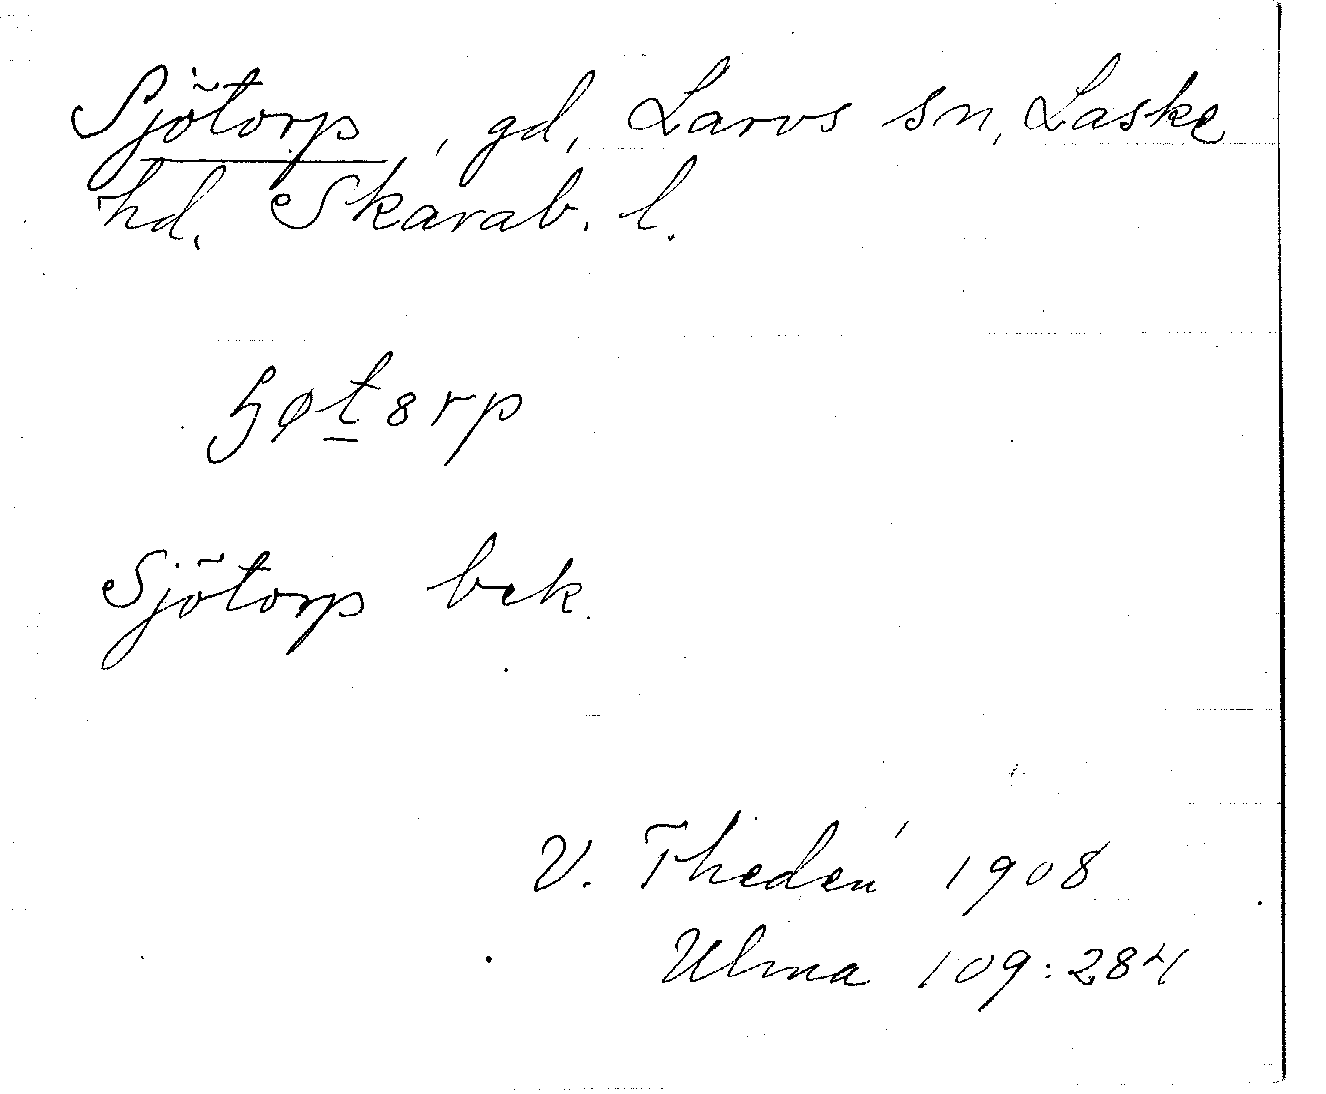 Sjötorp, gd, Larvs sn, Laske
hd. Skarab. l.
ɧøt8rp
Sjötorp bek.
V. Thedén 1908
Ulma 109:284